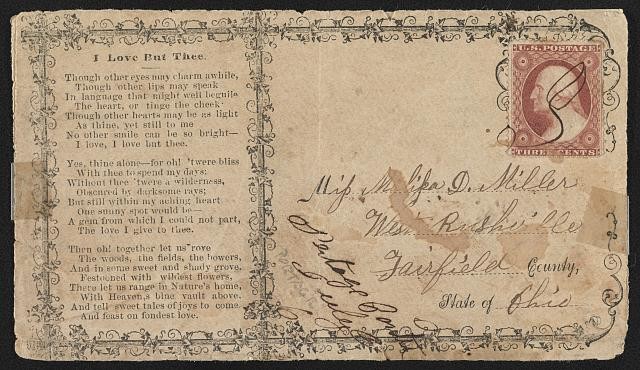 I Love But Thee.
Though other eyes may charm awhile,
Though other lips may speak
In language that might well beguile
The heart, or tinge the cheek:
Though other hearts may be as light
As thine, yet still to me
No other smile can be so bright—
I love, I love but thee.
Yes, thine alone—for oh! 'twere bliss
With thee to spend my days;
Without thee 'twere a wilderness,
Obscured by darksome rays;
But still within my aching heart
One sunny spot would be—
A gem from which I could not part,
The love I give to thee.
Then oh! together let us rove
The woods, the fields, the bowers,
And in some sweet and shady grove,
Festooned with wildest flowers,
There let us range in Nature's home,
With Heaven,s blue vault above.
And tell sweet tales of joys to come
And feast on fondest love.
U.S. POSTAGE
THREE CENTS
Miss D. Miller
West Rushville
Fairfield County,
State of Ohio
Portage